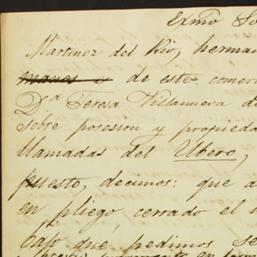 Exmô So
Martinez del Rio, herman
de este comer
Dª Teresa Villanueva d
sobre posesion y propieda
llamadas del Ubero,
puesto, decimos: que a
en pliego cerrado el i
bajo que pedimos se